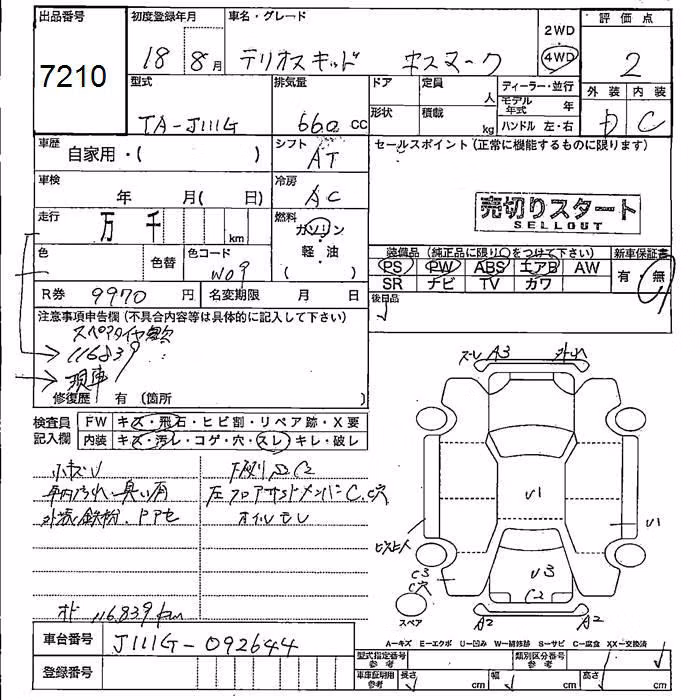 出品番号 7210
初度登録年月 18 8月
車名・グレード テリオスキッド カスタマーク
2WD
4WD
評価点 2
外装 内装
D C
型式 TA-J111G
排気量 660 CC
ドア 定員 人
形状 積載 kg
ディーラー・並行
モデル年式 年
ハンドル 左・右
車歴 自家用・( )
シフト AT
セールスポイント (正常に機能するものに限ります)
売切りスタート
SELLOUT
車検 年 月( 日)
冷房 AC
走行 万 千 km
燃料 ガソリン
軽・油
( )
色 色替 色コード W09
装備品 (純正品に限り○をつけて下さい)
PS PW ABS エアB AW
SR ナビ TV カワ
新車保証書
有・無
R券 9970 円 名変期限 月 日
後日品
注意事項申告欄 (不具合内容等は具体的に記入して下さい)
スペアタイヤ欠
116839
現車
修復歴 有 (箇所 )
検査員記入欄
FW キズ・飛石・ヒビ割・リペア跡・X要
内装 キズ・汚レ・コゲ・穴・スレ・キレ・破レ
小キズU
下廻リ C2
外装鉄粉、ドアモ
オイルモレ
オド 116,839km
スレ A3
U1
U1
U3
C2
C3
C穴
A2 A2
スペア
A—キズ E—エクボ U—凹み W—補修跡 S—サビ C—腐食 XX—交換済
車台番号 J111G-092644
登録番号
型式指定番号 参考
類別区分番号 参考
車庫証明用 参考 長さ cm 幅 cm 高さ cm